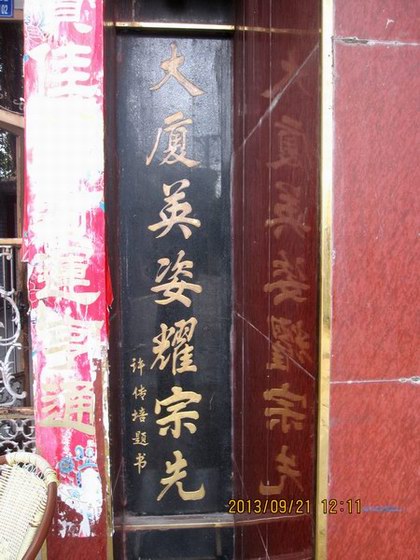 大廈英姿耀宗先
许传培题书
佳
運亨通
2013/09/21 12:11